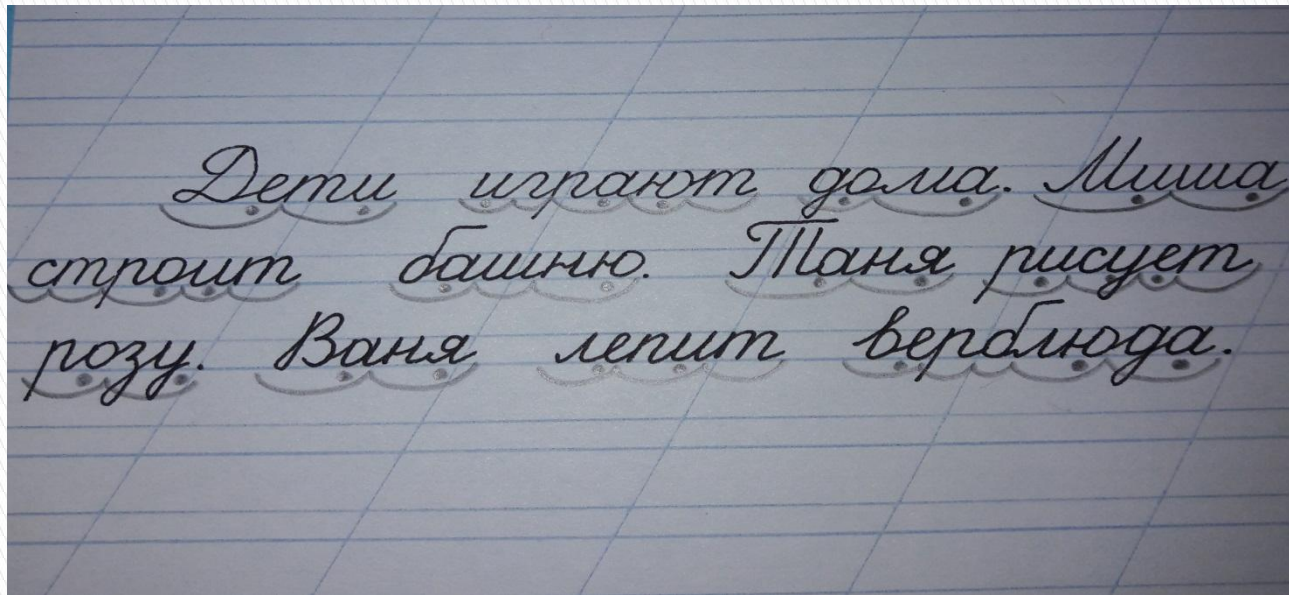 Дети играют дома. Миша
строит башню. Таня рисует
розу. Ваня лепит верблюда.